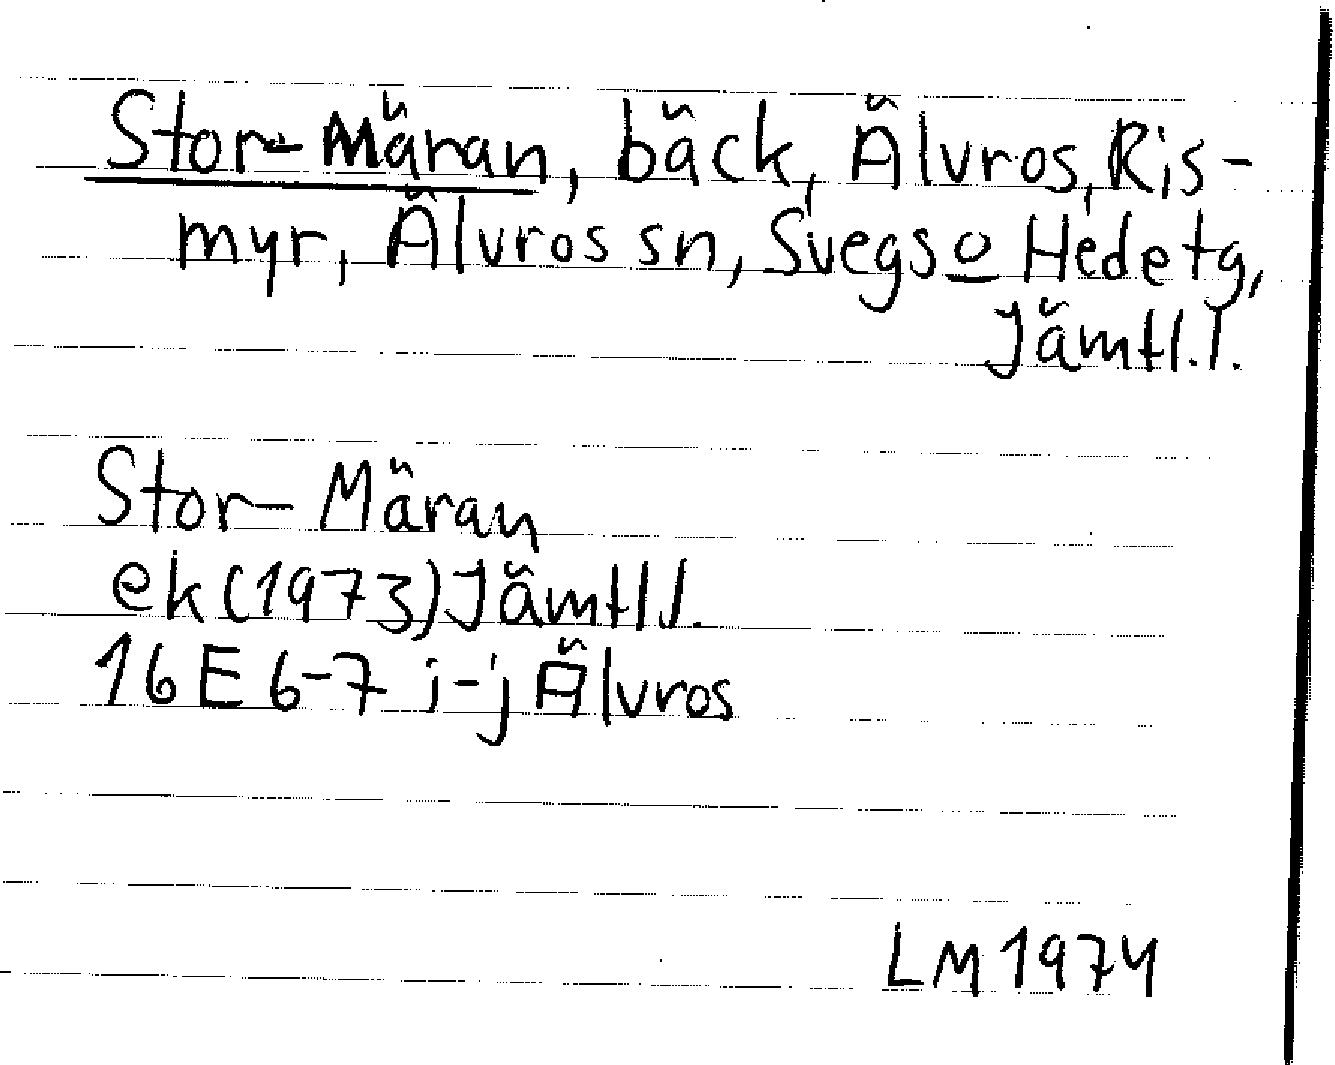 Stor-Märan, bäck, Älvros, Ris-
myr, Älvros sn, Svegs o Hede tg,
Jämtl.l.
Stor-Märan
ek (1973) Jämtl l.
16 E 6-7 i-j Älvros
LM 1974